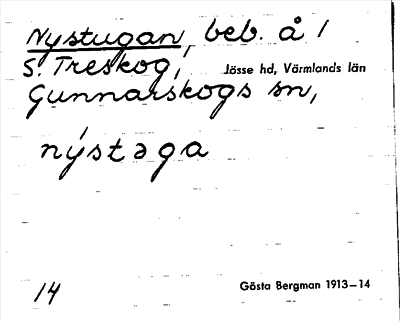 Nystugan, beb. å 1
S. Treskog, Jösse hd, Värmlands län
Gunnarskogs sn,
nýstəga
14
Gösta Bergman 1913–14